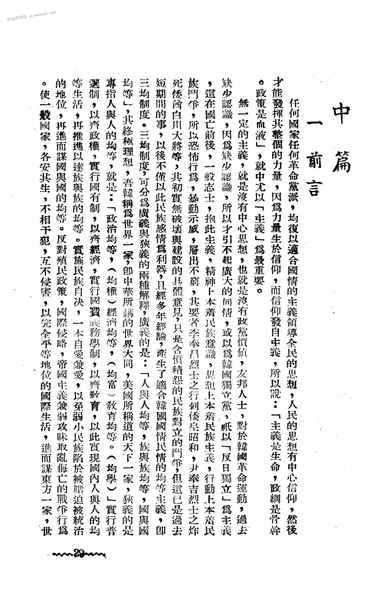 中篇
一　前言
任何國家任何革命黨派，均復以適合國情的主義領導全民的思想，人民的思想有中心信仰，然後
才能發揮其整個的力量，因為力量生於信仰，而信仰發自主義，所以說：「主義是生命，政綱是骨幹
。政策是血液」，就中尤以「主義」為最重要。
無一定的主義，就是沒有中心思想，也就是沒有政黨價值，友邦人士，對於韓國革命運動，過去
缺少認識，因為缺少認識，所以才引不起廣大的同情，或以為韓國獨立黨，祇以「反日獨立」為主義
，這在國亡前後，一般志士，抱此主義，精神上本着民族意識，思想上本着民族主義，行動上本着民
族鬥爭，所以恐怖行為，暴動示威，層出不窮，其要者李奉昌烈士之行刺倭皇昭和，尹奉吉烈士之炸
死倭酋白川大將等，其初實無破壞與建設的具體意見，只是含憤精怨的民族對立的鬥爭，但這已是過去
短期間的事，以後不僅以此民族感情為利器，且經多年經驗，產生了適合韓國國情民情的均等主義，卽
三均制度。三均制度，可分為廣義與狹義的兩種解釋，廣義的是：「人與人均等，族與族均等，國與國
均等」，其終極理想，吾韓稱為世界一家，卽中華所稱的世界大同，美國所稱道的天下一家，狹義的是
專指人與人的均等，就是：「政治均等，（均權）經濟均等，（均富）敎育均等。（均學）」實行普
選制，以齊政權，實行國有制，以齊經濟，實行國費義務學制，以齊敎育，以此實現國內人與人的均
等生活，再推進以達族與族的均等。實施民族自决，一本自愛兼愛，以至弱小民族陷於被壓迫被統治
的地位，再進而謀國與國的均等。反對殖民政策，國際侵略，帝國主義兼弱攻昧取亂侮亡的戰爭行為
。使一般國家，各安其生，不相干犯，互不侵害，以完全平等地位的國際生活，進而謀東方一家，世
29